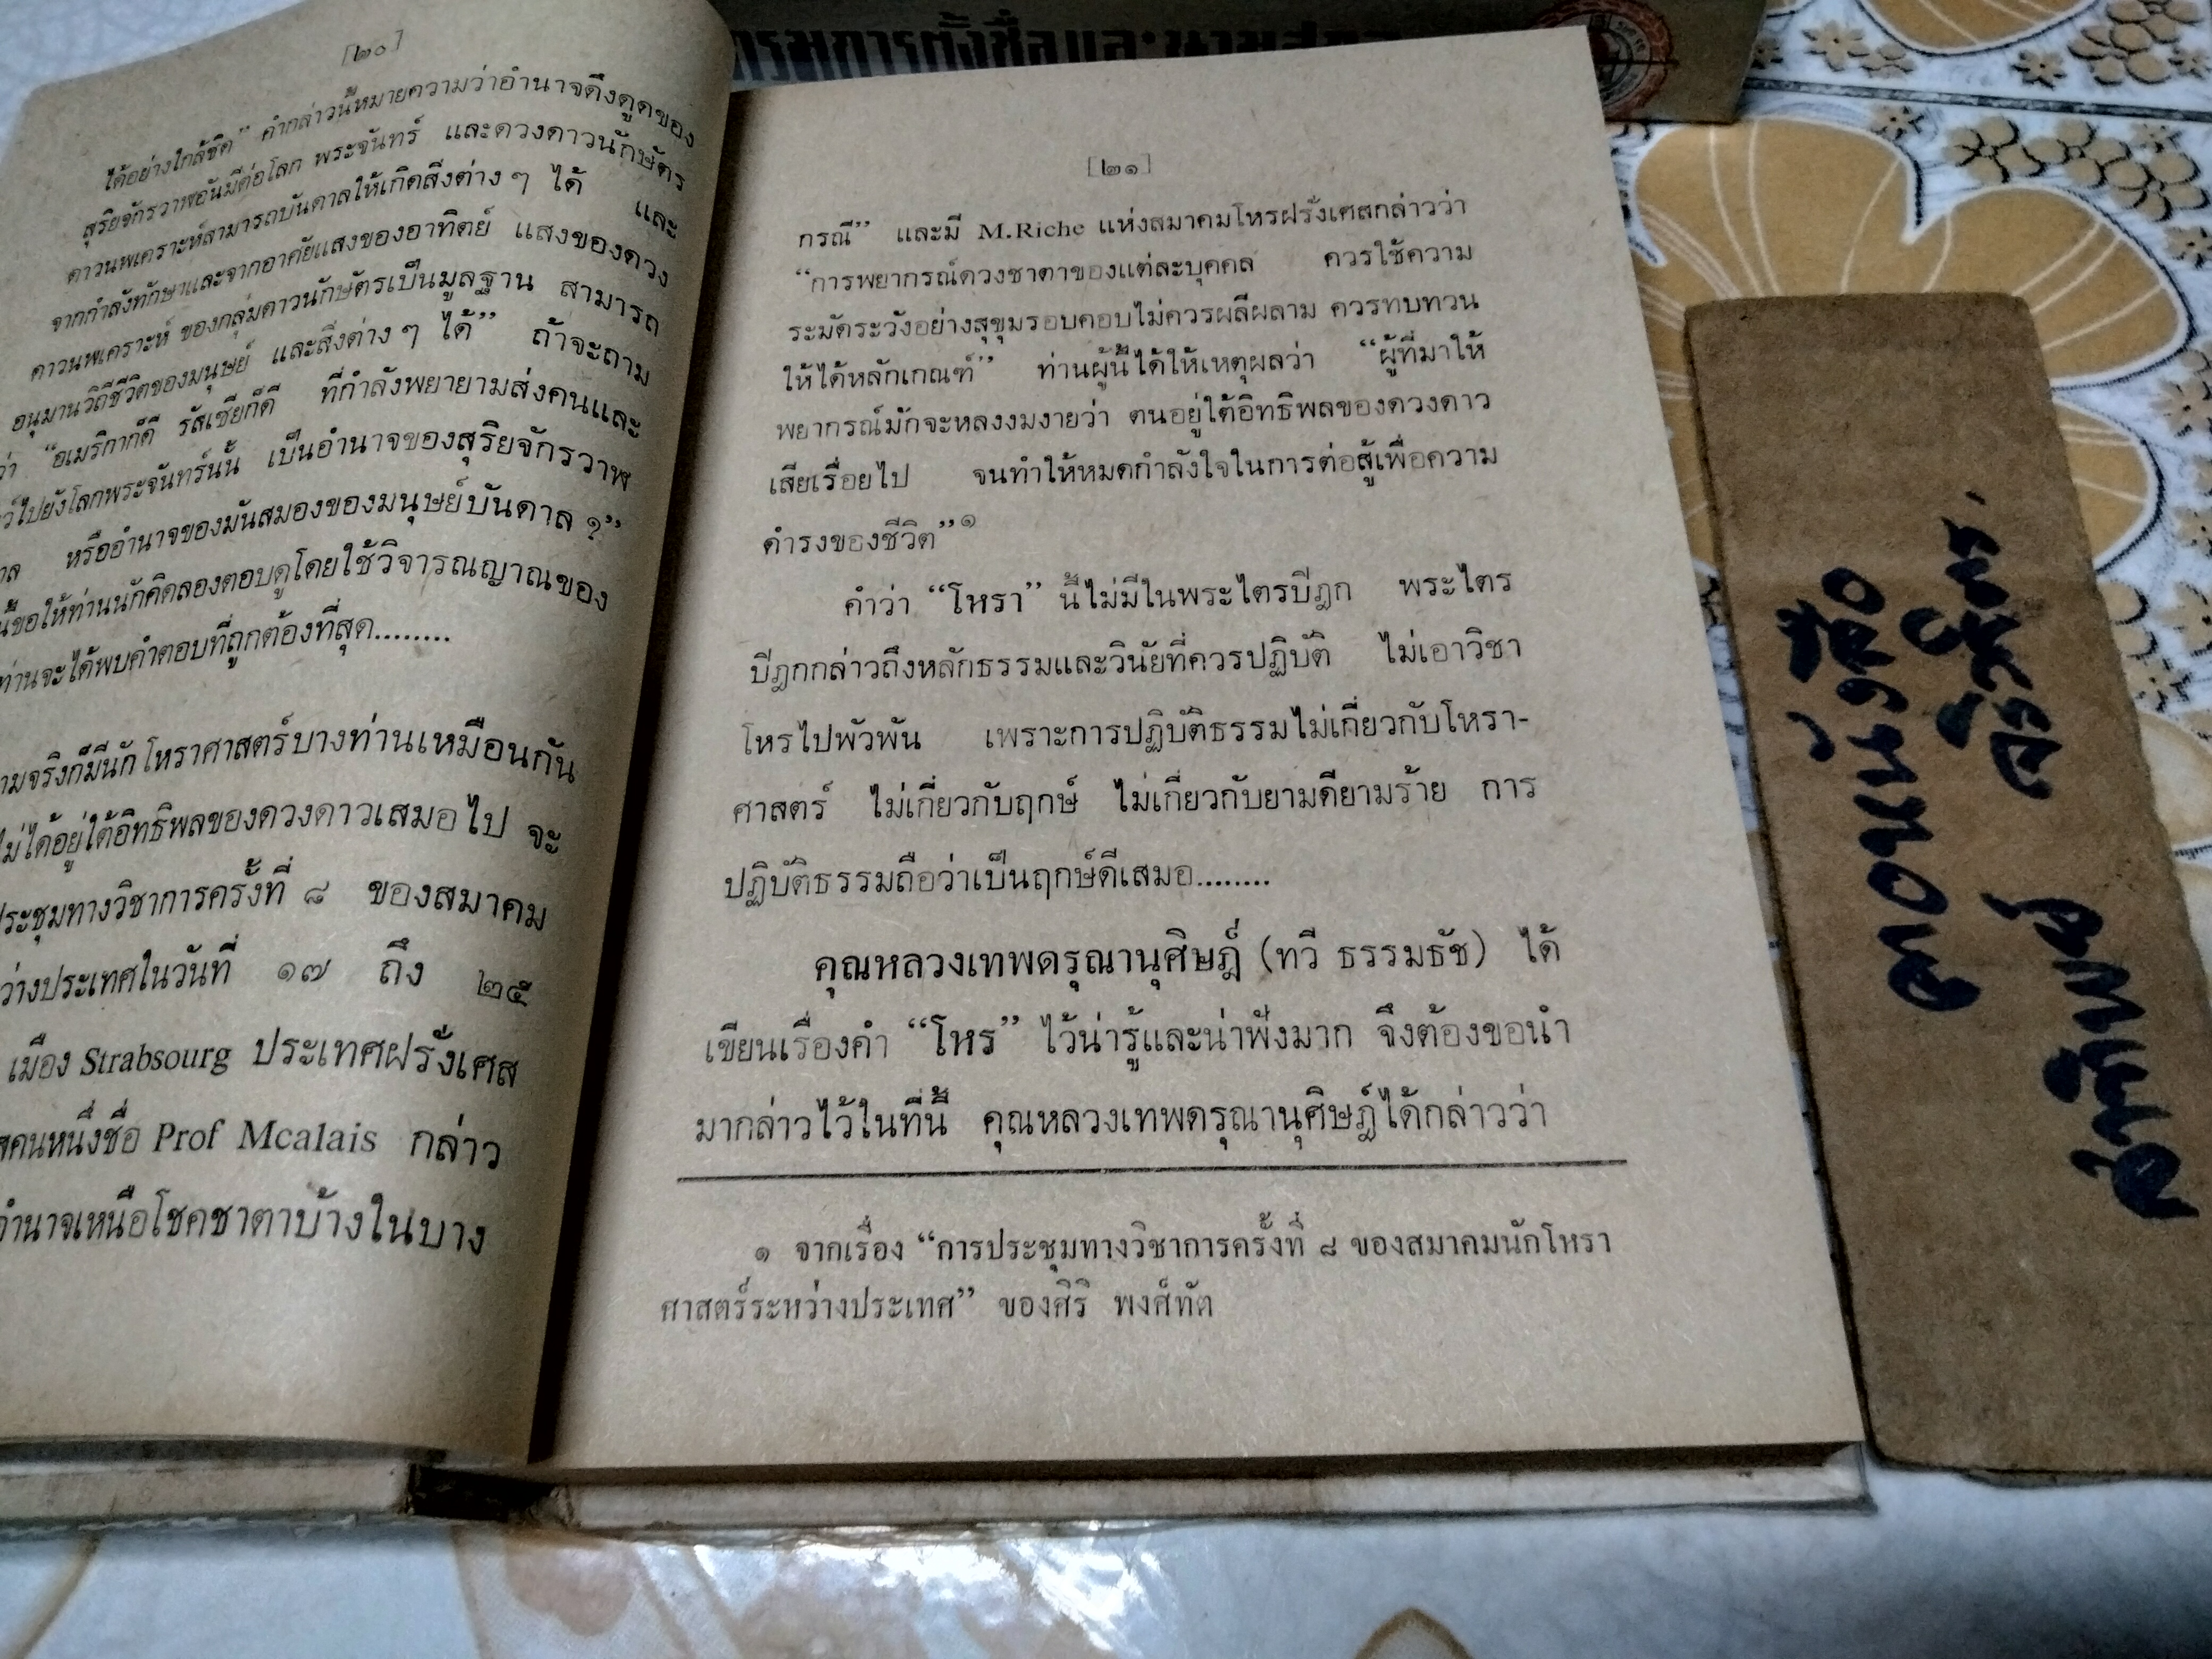 [๒๐]
ได้อย่างใกล้ชิด” คำกล่าวนี้หมายความว่าอำนาจดึงดูดของ
สุริยจักรวาฬอันมีต่อโลก พระจันทร์ และดวงดาวนักษัตร
ดาวนพเคราะห์สามารถบันดาลให้เกิดสิ่งต่าง ๆ ได้ และ
จากกำลังทักษาและจากอาศัยแสงของอาทิตย์ แสงของดวง
ดาวนพเคราะห์ ของกลุ่มดาวนักษัตรเป็นมูลฐาน สามารถ
อนุมานวิถีชีวิตของมนุษย์ และสิ่งต่าง ๆ ได้” ถ้าจะถาม
ว่า “อเมริกาก็ดี รัสเซียก็ดี ที่กำลังพยายามส่งคนและ
ไปยังโลกพระจันทร์นั้น เป็นอำนาจของสุริยจักรวาฬ
หรืออำนาจของมันสมองของมนุษย์บันดาล ?”
นี้ขอให้ท่านนักคิดลองตอบดูโดยใช้วิจารณญาณของ
ท่านจะได้พบคำตอบที่ถูกต้องที่สุด........
ามจริงก็มีนักโหราศาสตร์บางท่านเหมือนกัน
ไม่ได้อยู่ใต้อิทธิพลของดวงดาวเสมอไป จะ
ประชุมทางวิชาการครั้งที่ ๘ ของสมาคม
ว่างประเทศในวันที่ ๑๗ ถึง ๒๕
เมือง Strabsourg ประเทศฝรั่งเศส
คนหนึ่งชื่อ Prof Mcalais กล่าว
อำนาจเหนือโชคชาตาบ้างในบาง
[๒๑]
กรณี” และมี M.Riche แห่งสมาคมโหรฝรั่งเศสกล่าวว่า
“การพยากรณ์ดวงชาตาของแต่ละบุคคล ควรใช้ความ
ระมัดระวังอย่างสุขุมรอบคอบไม่ควรผลีผลาม ควรทบทวน
ให้ได้หลักเกณฑ์” ท่านผู้นี้ได้ให้เหตุผลว่า “ผู้ที่มาให้
พยากรณ์มักจะหลงงมงายว่า ตนอยู่ใต้อิทธิพลของดวงดาว
เสียเรื่อยไป จนทำให้หมดกำลังใจในการต่อสู้เพื่อความ
ดำรงของชีวิต”๑
คำว่า “โหรา” นี้ไม่มีในพระไตรปิฎก พระไตร
ปิฎกกล่าวถึงหลักธรรมและวินัยที่ควรปฏิบัติ ไม่เอาวิชา
โหรไปพัวพัน เพราะการปฏิบัติธรรมไม่เกี่ยวกับโหรา-
ศาสตร์ ไม่เกี่ยวกับฤกษ์ ไม่เกี่ยวกับยามดียามร้าย การ
ปฏิบัติธรรมถือว่าเป็นฤกษ์ดีเสมอ........
คุณหลวงเทพดรุณานุศิษฏ์ (ทวี ธรรมธัช) ได้
เขียนเรื่องคำ “โหร” ไว้น่ารู้และน่าฟังมาก จึงต้องขอนำ
มากล่าวไว้ในที่นี้ คุณหลวงเทพดรุณานุศิษฏ์ได้กล่าวว่า
๑ จากเรื่อง “การประชุมทางวิชาการครั้งที่ ๘ ของสมาคมนักโหรา
ศาสตร์ระหว่างประเทศ” ของศิริ พงศ์ทัต